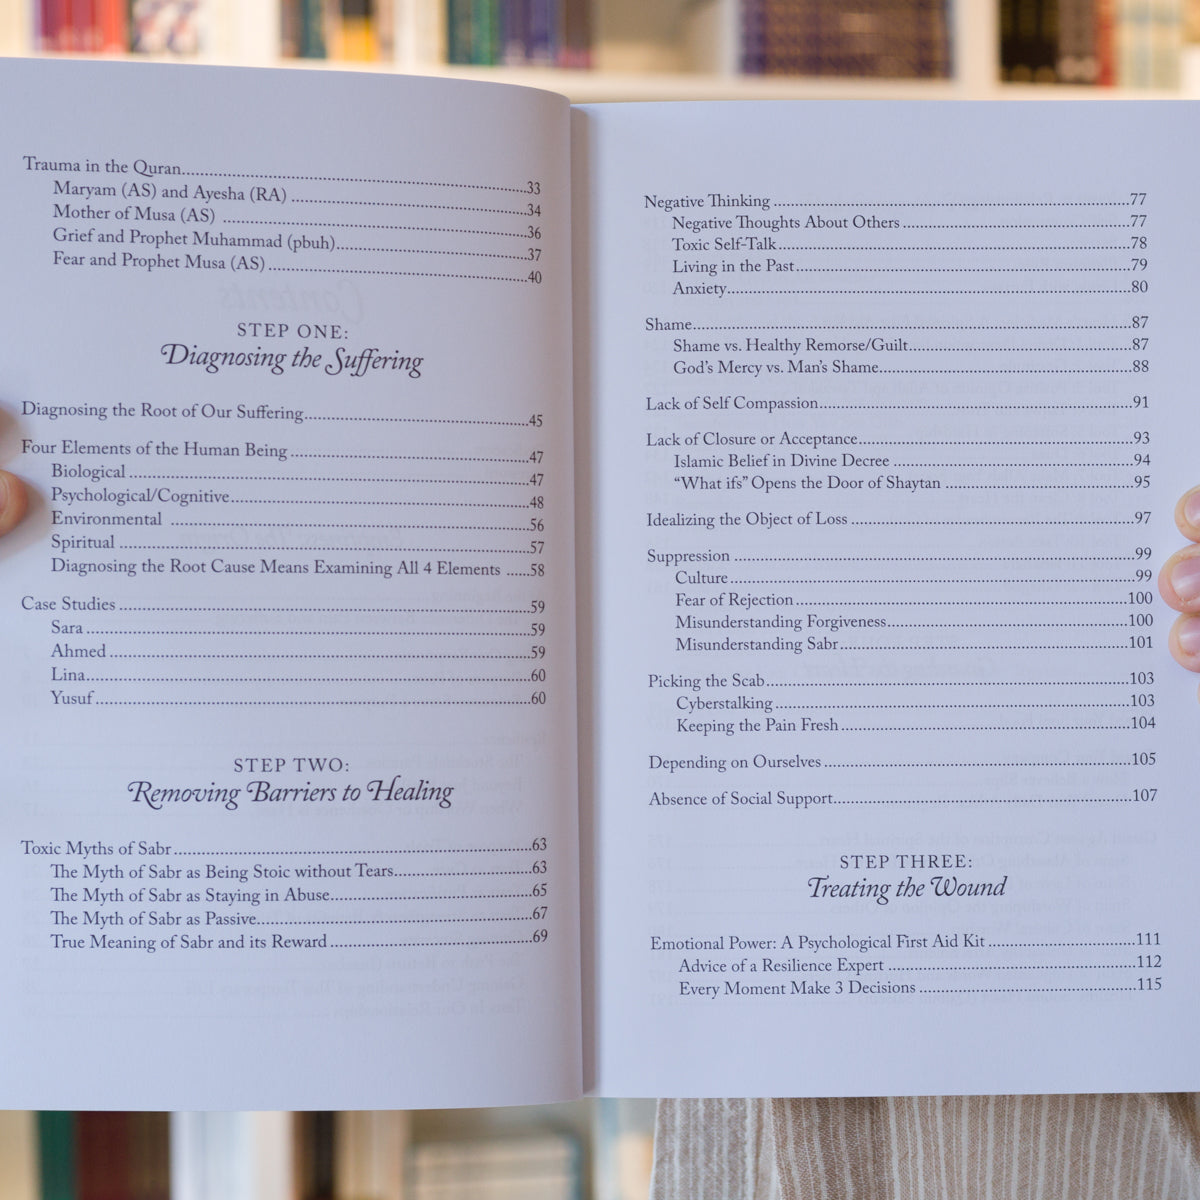 Trauma in the Quran..........33
Maryam (AS) and Ayesha (RA)..........34
Mother of Musa (AS)..........36
Grief and Prophet Muhammad (pbuh)..........37
Fear and Prophet Musa (AS)..........40
STEP ONE:
Diagnosing the Suffering
Diagnosing the Root of Our Suffering..........45
Four Elements of the Human Being..........47
Biological..........47
Psychological/Cognitive..........48
Environmental..........56
Spiritual..........57
Diagnosing the Root Cause Means Examining All 4 Elements ......58
Case Studies..........59
Sara..........59
Ahmed..........59
Lina..........60
Yusuf..........60
STEP TWO:
Removing Barriers to Healing
Toxic Myths of Sabr..........63
The Myth of Sabr as Being Stoic without Tears..........63
The Myth of Sabr as Staying in Abuse..........65
The Myth of Sabr as Passive..........67
True Meaning of Sabr and its Reward..........69
Negative Thinking..........77
Negative Thoughts About Others..........77
Toxic Self-Talk..........78
Living in the Past..........79
Anxiety..........80
Shame..........87
Shame vs. Healthy Remorse/Guilt..........87
God's Mercy vs. Man's Shame..........88
Lack of Self Compassion..........91
Lack of Closure or Acceptance..........93
Islamic Belief in Divine Decree..........94
“What ifs” Opens the Door of Shaytan..........95
Idealizing the Object of Loss..........97
Suppression..........99
Culture..........99
Fear of Rejection..........100
Misunderstanding Forgiveness..........100
Misunderstanding Sabr..........101
Picking the Scab..........103
Cyberstalking..........103
Keeping the Pain Fresh..........104
Depending on Ourselves..........105
Absence of Social Support..........107
STEP THREE:
Treating the Wound
Emotional Power: A Psychological First Aid Kit..........111
Advice of a Resilience Expert..........112
Every Moment Make 3 Decisions..........115